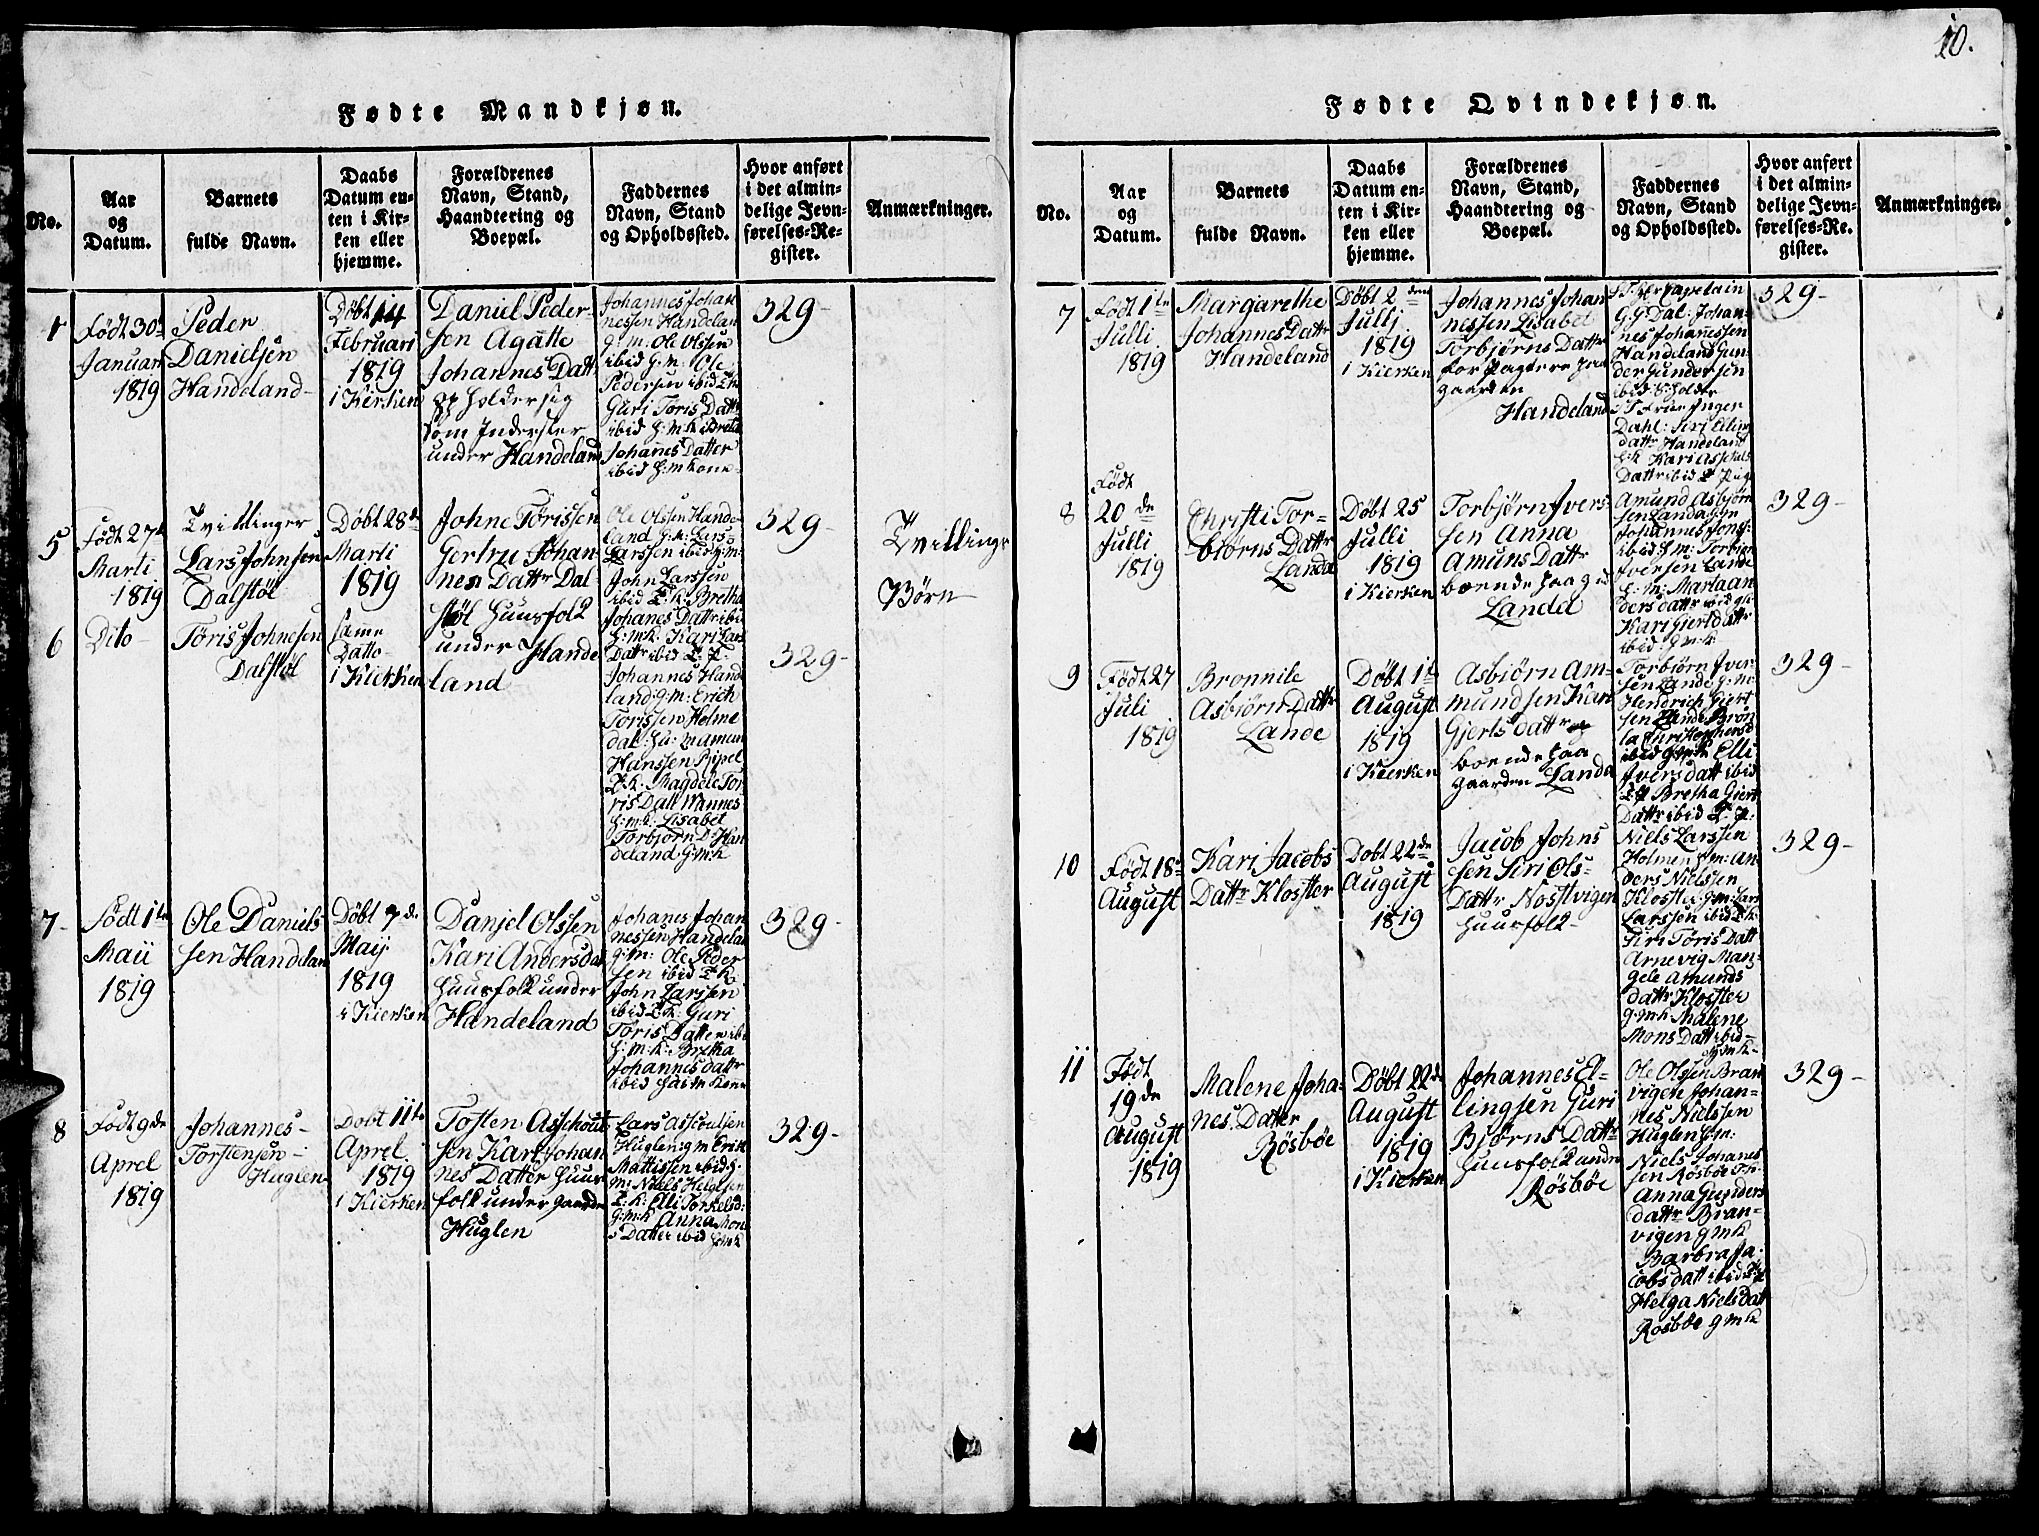 10.
Fødte Mandkjøn.
No.
Aar
og
Datum.
Barnets
fulde Navn.
Daabs
Datum en-
ten i Kir-
ken eller
hjemme.
Forældrenes
Navn, Stand,
Haandtering og
Boepæl.
Faddernes
Navn, Stand
og Opholdssted.
Hvor anført
i det almin-
delige Jevn-
førelses-Re-
gister.
Anmærkninger.
Født 30
Januari
1819
Peder
Danielsen
Handeland-
Døbt 14
Februari
1819
i Kierken
Daniel Peder-
sen Agatte
Johannes Datt
holder sig
som Inderster
under Handeland
Johannes Johan
nessen Handelan
g: m: Ole Olssen
ibid G: m: Ole
Pedersen ibid
Guri Tøris Dattr
ibid H: m: k Bretha
Johanes Datter
ibid H: m kone-
329-
5
Født 27
Marti
1819
Tvillinger
Lars Johnsen
Dalstøl
Døbt 28 de
Marti
1819
Johne Tørissen
Gertru Johan-
nes Dattr Dal-
støl Huusfolk
under Hande
land
Ole Olssen Hande
land g: k: Lars
Larssen ibid g: m:
John Larssen
ibid Bretha
Johanes Datt ibid
H: m k: Kari Lars
Dattr ibid
Johannes Hand
land: g: m: Erich
Torissen Holme
dal
Hanssen
Magdele Tor
ris Datt Winnes
H: m: k: Lisabet
Torbjorn D: Han
deland G: m: k
329-
Tvillinge
Børn
6
Dito-
Tøris Johnesen
Dalstøl
samme
Datto-
i Kierken
329-
7-
Født 1 te
Maii
1819
Ole Daniels-
sen Handelan
Døbt 7 de
Maij
1819
i Kierken
Danjel Olssen
Kari Andersdat
Huusfolk under
Handeland
Johanes Johan
nessen Handelan
g: m: Ole Peder
sen ibid
John Larssen
ibid Guri
Tøris Datter ibi
H: m: k: Bretha
Johannes dattr
ibid
329-
8
Født 9 de
Aprel
1819
Johannes-
Torstensen-
Huglen
Døbt 11 te
Aprel
1819
i Kierken
Tosten Asschout
sen Kari Johan
nes Datter Huus
folk under gaarden
Huglen
Lars Asscoulsen
Huglen g m Erik
Mattissen ibid g:
m: Niels Helgesen
Elli Torkelsd:
g: m: k Anna Mon
s Datter ibid
329-
Fødte Qvindekjøn.
No.
Aar
og
Datum.
Barnets
fulde Navn.
Daabs
Datum en-
ten i Kir-
ken eller
hjemme.
Forældrenes
Navn, Stand,
Haandtering og
Boepæl.
Faddernes
Navn, Stand
og Opholdssted.
Hvor anført
i det almin-
delige Jevn-
førelses-Re-
gister.
Anmærkninger.
7
Født 1 te
Julli
1819
Margarethe
Johannes Dattr
Handeland
Døbt 2 den
Jullj
1819
i Kierken
Johannes Johan
nessen Lisabet
Torbjørns Dattr
gaarden
Handeland
Capelain
G G Dal: Johan-
nes Johannessen
Handeland Gun
der Gundersen
ibid
Inger
Dahl: Siri Elling
dattr Handeland
Kari
Dattr ibid
329-
8
Født
20 de
Julli
1819
Christi Tor-
biørns Dattr
Landa
Døbt 25
Julli
1819
i Kierken
Torbjørn Ivers-
sen Anna
Amuns Dattr
boende paa g
Landa
Amund Asbjørn
sen Landa g: m
Johannes Jons:
ibid g m: Torbiør
Iversen Lande
g: m: Marta an
ders dattr ibid
Kari Gjert dattr
ibid: g m: k
329-
9
Født 27
Juli
1819
Bronnile
Asbiørn Dattr
Lande
Døbt 1 te
August
1819
i Kierken
Asbiørn Am-
mundsen Kari
Gjerts dattr
boende paa
gaarden Landa
Torbiørn Iver-
sen Lande g: m:
Hendrich Giert
sen Lande Bron
la
ibid Elli
Ivers datt ibid
Bretha Giert
Dattr ibid
329-
10
Født 18
August
Kari Jacobs
Dattr Klostter
Døbt 22 de
August
1819
Jacob Johns
sen Siri Ols-
Dattr Nostvigen
Huusfolk-
Niels Larssen
Holmen g m: An
ders Nielssen
Kloster g: m: Lars
Larssen ibid
Siri Tøris Datt
Arnevig Man-
gele Amunds
dattr Klostter
g: m k: Malene
Mons Datt ibid-
g m k-
329-
11
Født
19 de
August
1819
Malene Joha-
nes: Datter
Røsbøe
Døbt 22 de
August
1819
i Kierken
Johannes El-
lingsen Guri
Bjørns Dattr
Huusfolk undr
Røsbøe
Ole Olssen Bran
vigen Johan-
nes Nielssen
Huglen
Niels Johanes
sen Røsbøe
Anna Gunders
dattr Bran-
vigen g m k
Barbra Ja-
cobs datt ibid
Helga Niels datt
Rosbøe g m k
329-